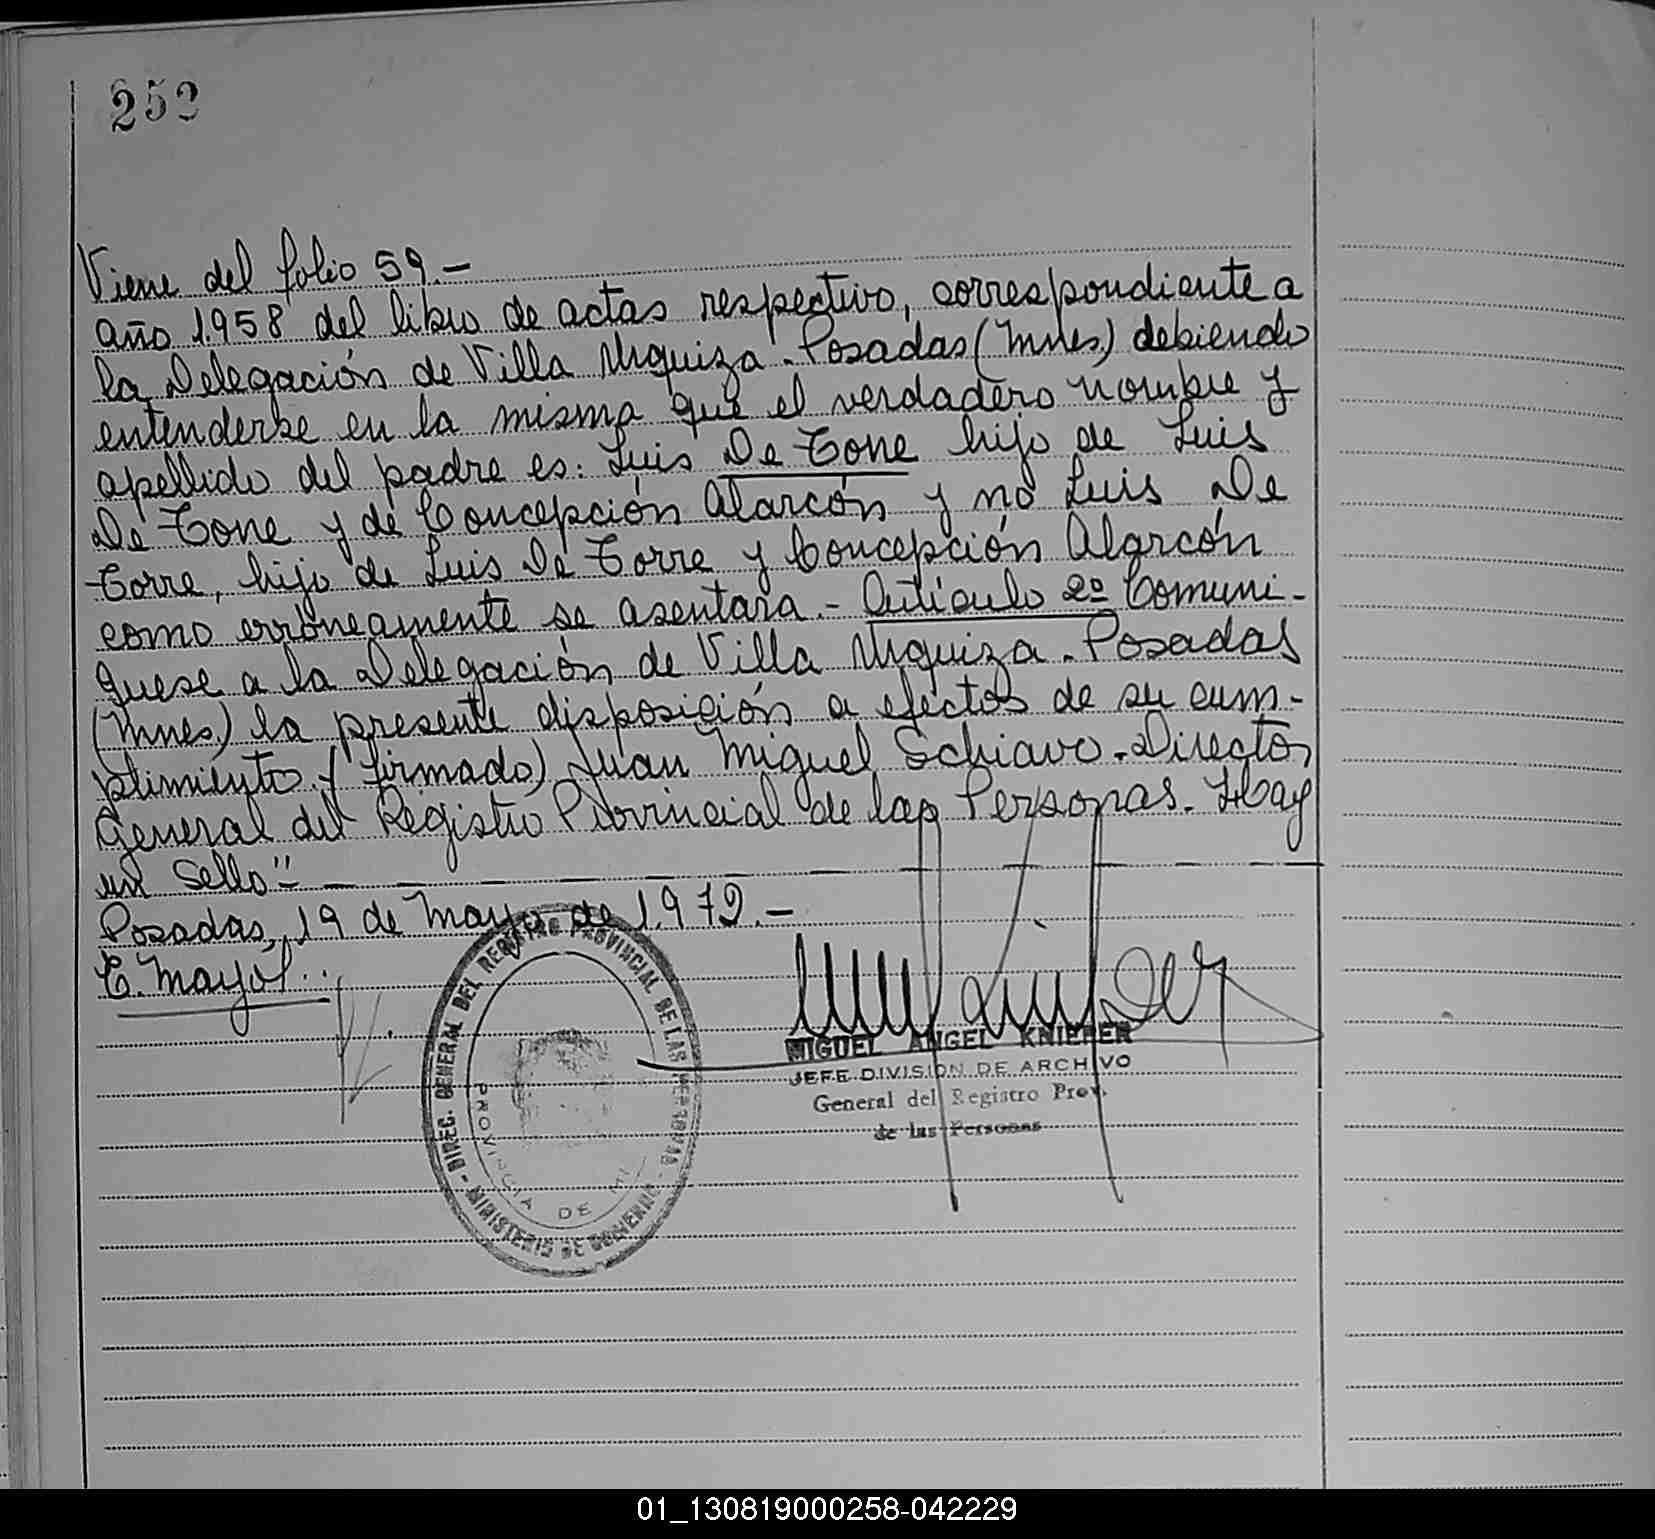 252
Viene del folio 59.-
año 1.958 del libro de actas respectivo, correspondiente a
la Delegación de Villa Urquiza - Posadas (Mnes.) debiendo
entenderse en la misma que el verdadero nombre y
apellido del padre es: Luis De Tone hijo de Luis
De Tone y de Concepción Alarcón y no Luis De
Torre, hijo de Luis De Torre y Concepción Alarcón
como erróneamente se asentara.- Artículo 2º Comuni-
quese a la Delegación de Villa Urquiza - Posadas
(Mnes.) la presente disposición a efectos de su cum-
plimiento. (firmado) Juan Miguel Schiavo - Director
General del Registro Provincial de las Personas. Hay
un Sello"-
Posadas, 19 de Mayo de 1.972.-
E. Mayol..
DIREC. GENERAL DEL REGISTRO PROVINCIAL DE LAS PERSONAS - MINISTERIO DE GOBIERNO -
PROVINCIA DE MI
MIGUEL ANGEL KNIERER
JEFE DIVISION DE ARCHIVO
General del Registro Prov.
de las Personas
01_130819000258-042229